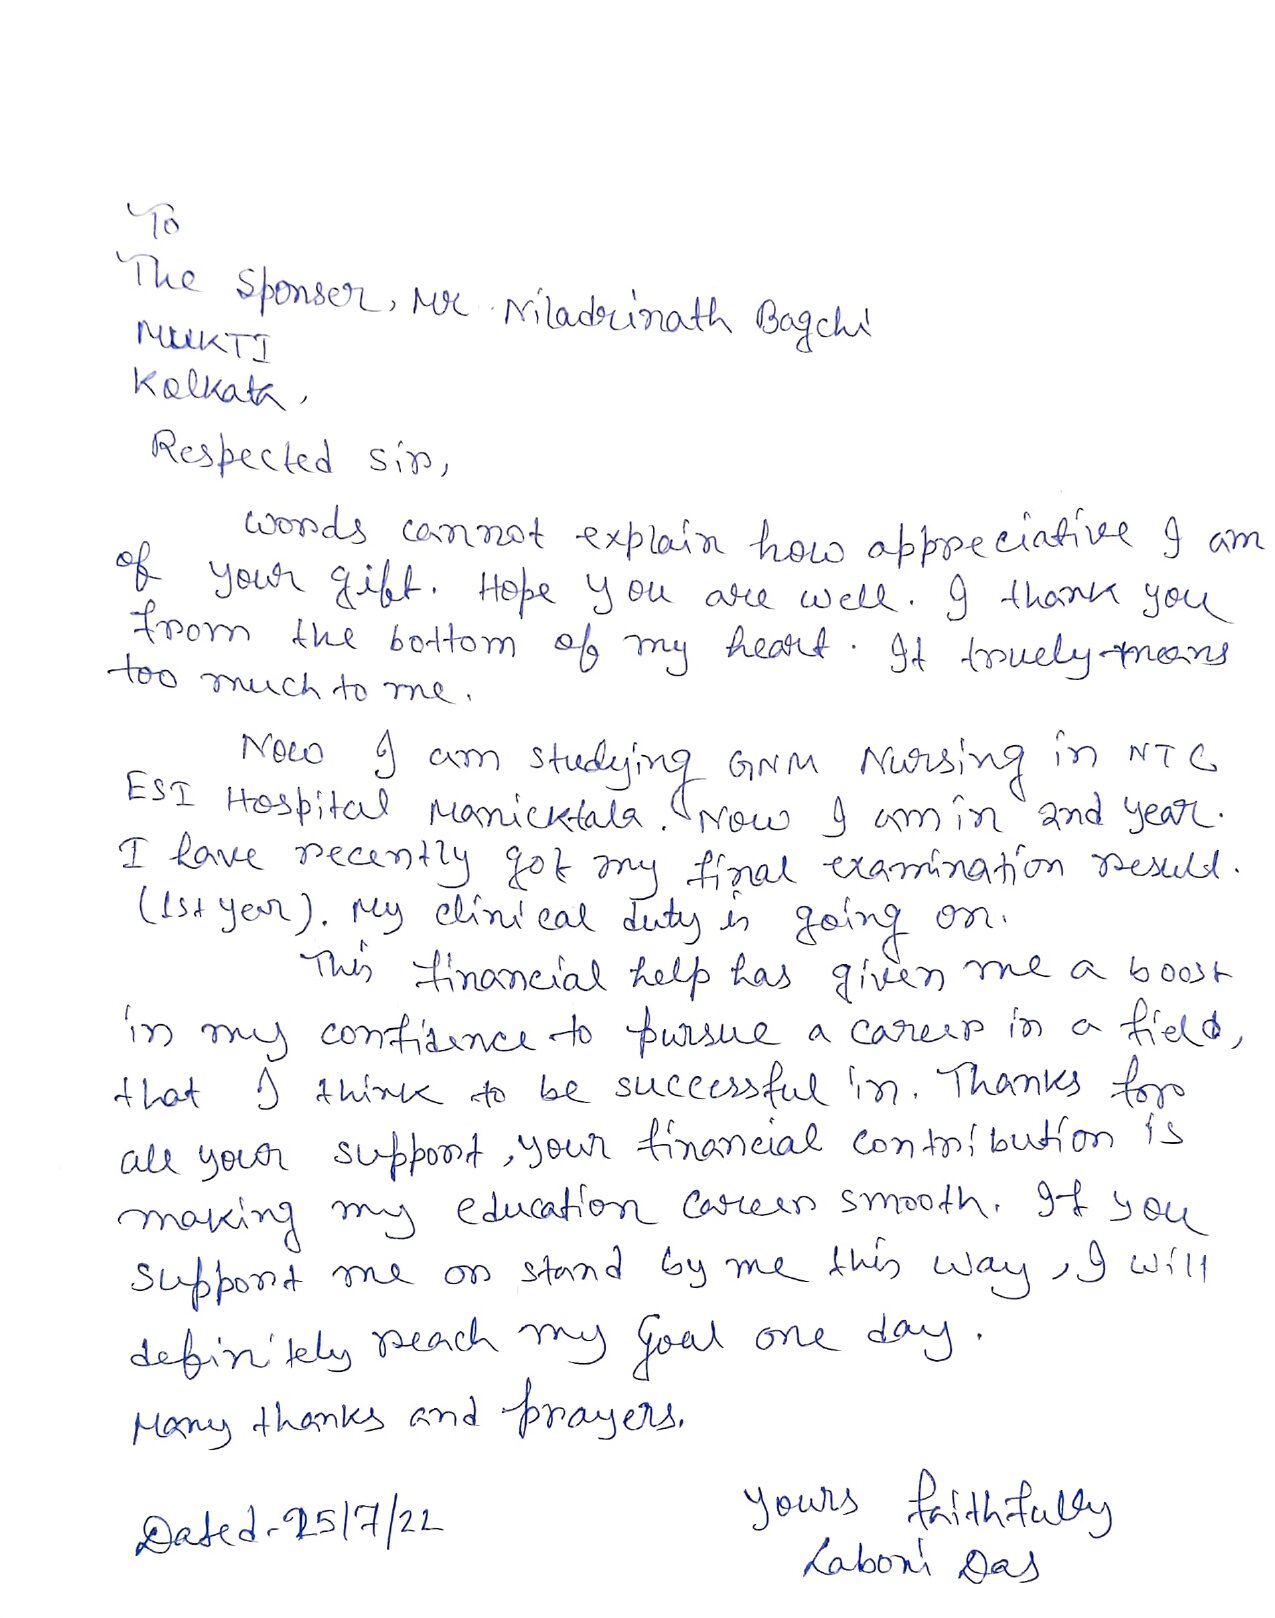 To
The Sponser, Mr. Niladrinath Bagchi
MUKTI
Kolkata,
Respected sir,
words cannot explain how appreciative I am
of your gift. Hope you are well. I thank you
from the bottom of my heart. It truely means
too much to me.
Now I am studying GNM Nursing in NTC
ESI Hospital Manicktala. Now I am in 2nd year.
I have recently got my final examination result.
(1st year). My clinical duty is going on.
This financial help has given me a boost
in my confidence to pursue a career in a field,
that I think to be successful in. Thanks for
all your support, your financial contribution is
making my education career smooth. If you
support me or stand by me this way, I will
definitely reach my Goal one day.
Many thanks and prayers.
Dated-25/7/22
Yours faithfully
Laboni Das